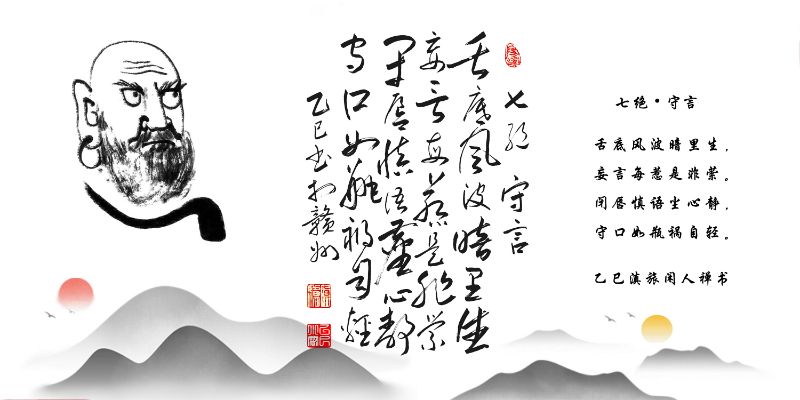 七绝 守言
舌底风波暗里生
妄言每惹是非萦
闭唇慎语尘心静
守口如瓶祸自轻
乙巳书于赣州
七绝·守言
舌底风波暗里生，
妄言每惹是非萦。
闭唇慎语尘心静，
守口如瓶祸自轻。
乙巳滇旅闲人禅书